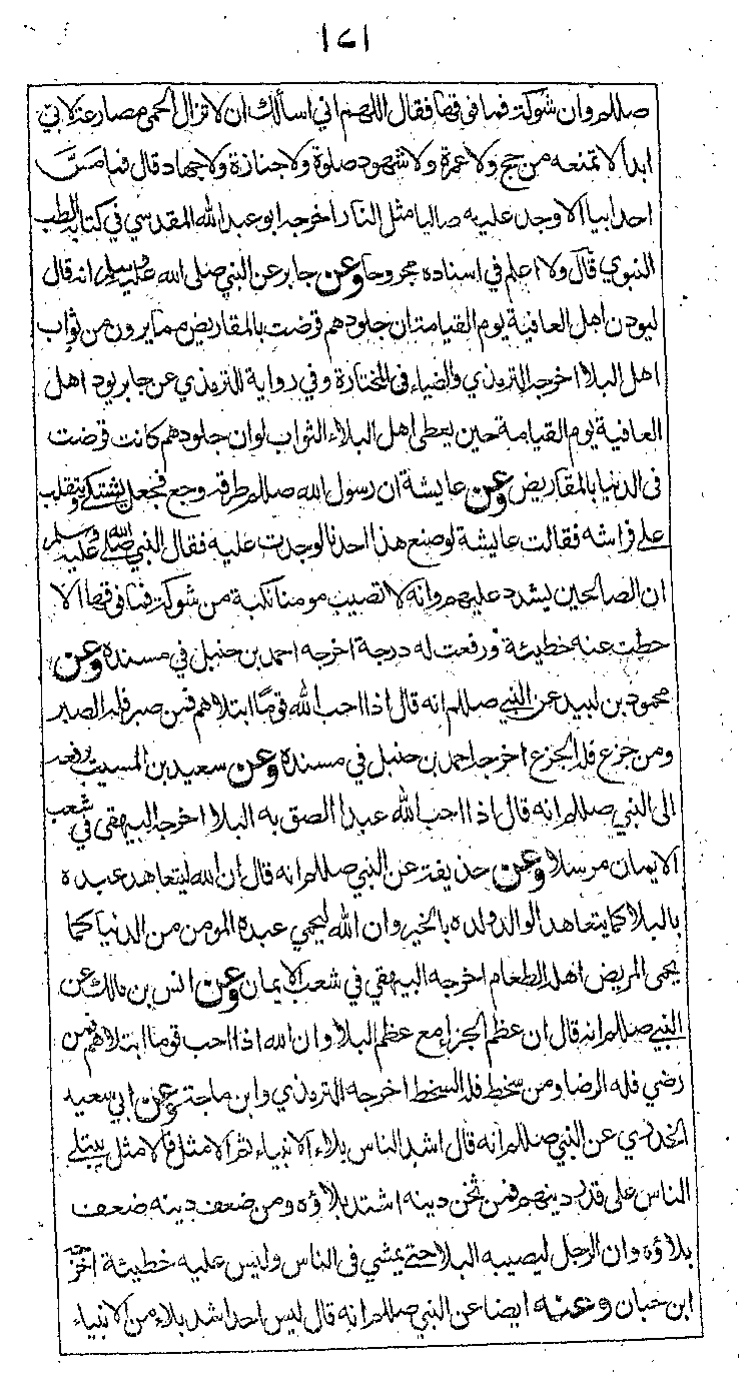 ١٨١
صللم وان شوكة فما فوقها فقال اللهم اني اسألك ان لا تزال الحمى مصارعة لابي
ابدا لا تمنعه من حج ولا عمرة ولا شهود صلوة ولا جنازة ولا جهاد قال فما مَسَّ
احد ابيا الا وجد عليه صاليا مثل النار اخرجه ابو عبد الله المقدسي في كتابه الطب
النبوي قال ولا اعلم في اسناده مجروحا وعن جابر عن النبي صلى الله عليه وسلم انه قال
ليودن اهل العافية يوم القيامة ان جلودهم قرضت بالمقاريض مما يرون من ثواب
اهل البلا اخرجه الترمذي والضياء في المختارة وفي رواية الترمذي عن جابر يود اهل
العافية يوم القيامة حين يعطى اهل البلاء الثواب لو ان جلودهم كانت قرضت
فى الدنيا بالمقاريض وعن عايشة ان رسول الله صللم طرقه وجع فجعل يشتكي ويتقلب
على فراشه فقالت عايشة لو صنع هذا احدنا لوجدت عليه فقال النبي صلى الله عليه وسلم
ان الصالحين يشدد عليهم وانه لا تصيب مومنا نكبة من شوكة فما فوقها الا
حطت عنه خطيئة ورفعت له درجة اخرجه احمد بن حنبل في مسنده وعن
محمود بن لبيد عن النبي صللم انه قال اذا احب الله قومًا ابتلاهم فمن صبر فله الصبر
ومن جزع فله الجزع اخرجه احمد بن حنبل في مسنده وعن سعيد بن المسيب رفعه
الى النبي صللم انه قال اذا احب الله عبدا الصق به البلا اخرجه البيهقي في شعب
الايمان مرسلا وعن حذيفة عن النبي صللم انه قال ان الله ليتعاهد عبده
بالبلا كما يتعاهد الوالد ولده بالخير وان الله ليحمي عبده المومن من الدنيا كما
يحمى المريض اهله الطعام اخرجه البيهقي في شعب الايمان وعن انس بن مالك عن
النبي صللم انه قال ان عظم الجزاء مع عظم البلا وان الله اذا احب قوما ابتلاهم فمن
رضي فله الرضا ومن سخط فله السخط اخرجه الترمذي وابن ماجة وعن ابي سعيد
الخدري عن النبي صللم انه قال اشد الناس بلاء الانبياء ثم الامثل فالامثل يبتلى
الناس على قدر دينهم فمن ثخن دينه اشتد بلاؤه ومن ضعف دينه ضعف
بلاؤه وان الرجل ليصيبه البلا حتى يمشي فى الناس وليس عليه خطيئة اخرجه
ابن حبان وعنه ايضا عن النبي صللم انه قال ليس احد اشد بلاء من الانبياء